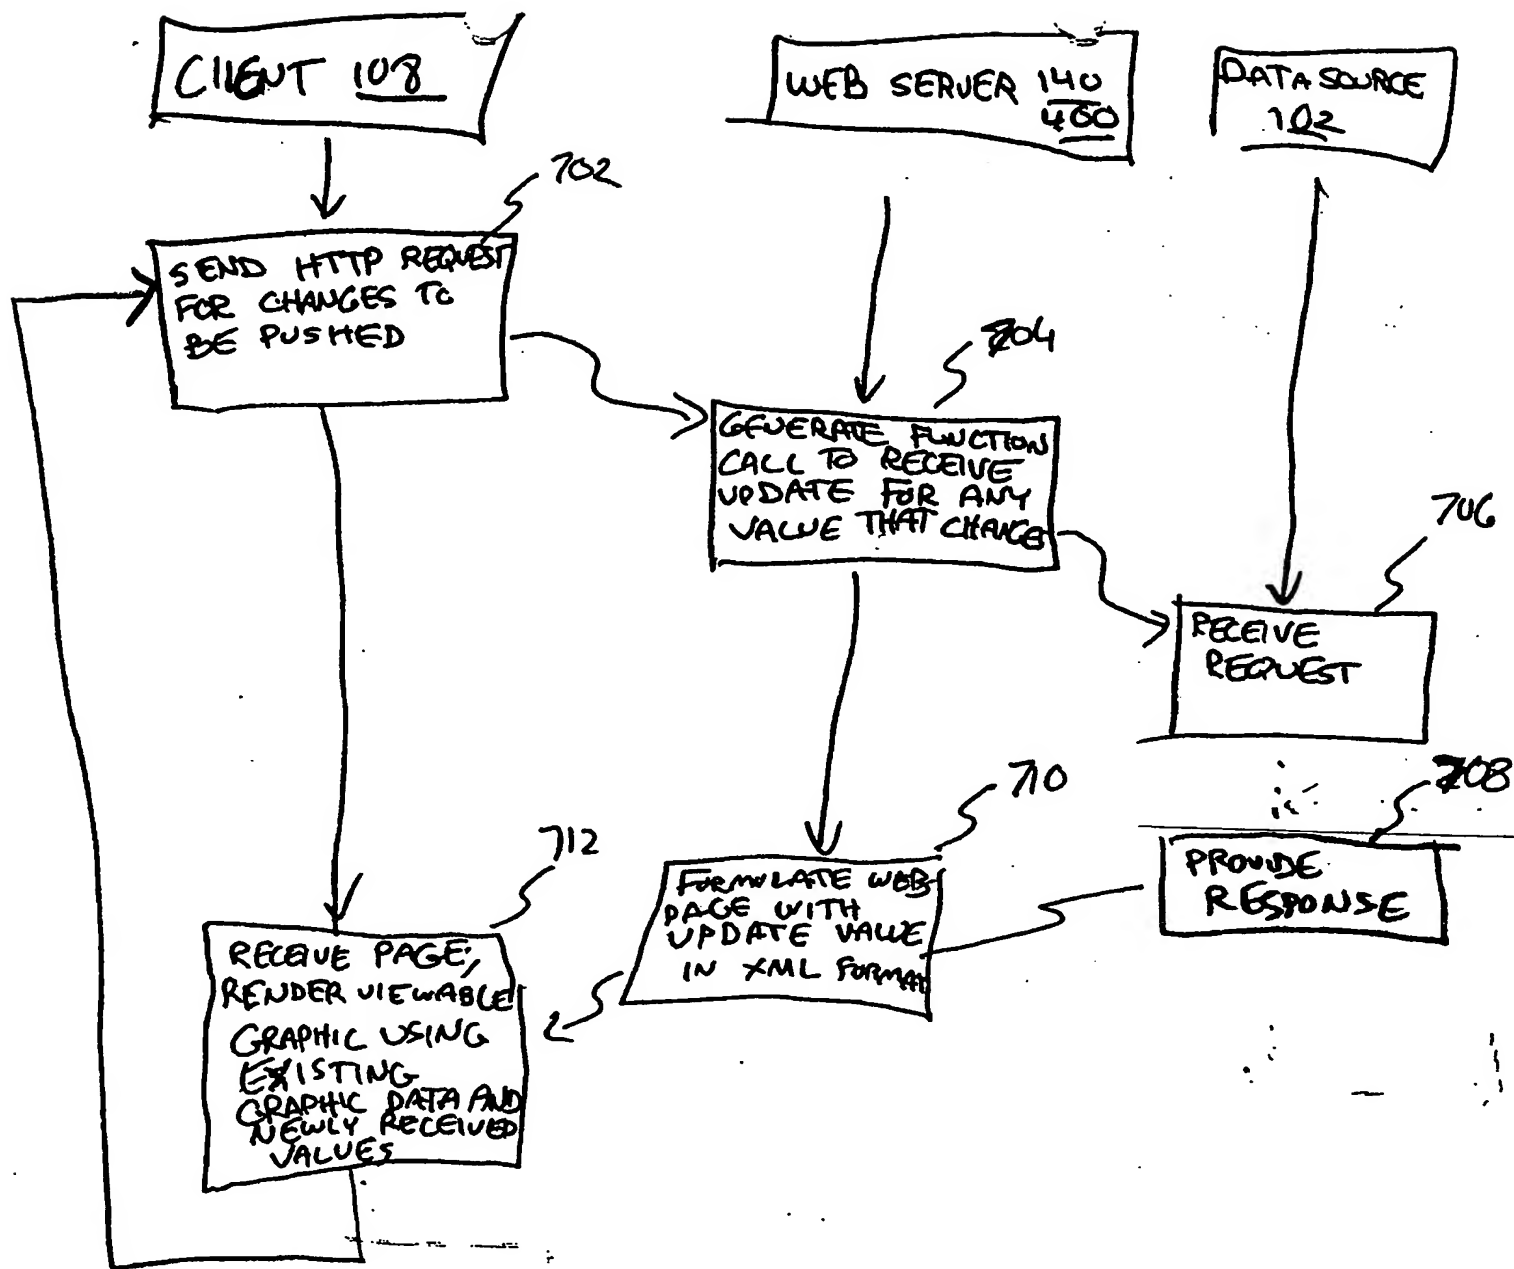 CLIENT 108
WEB SERVER 140
400
DATA SOURCE
102
702
SEND HTTP REQUEST
FOR CHANGES TO
BE PUSHED
704
GENERATE FUNCTION
CALL TO RECEIVE
UPDATE FOR ANY
VALUE THAT CHANGES
706
RECEIVE
REQUEST
708
PROVIDE
RESPONSE
710
FORMULATE WEB
PAGE WITH
UPDATE VALUE
IN XML FORMAT
712
RECEIVE PAGE;
RENDER VIEWABLE
GRAPHIC USING
EXISTING
GRAPHIC DATA AND
NEWLY RECEIVED
VALUES